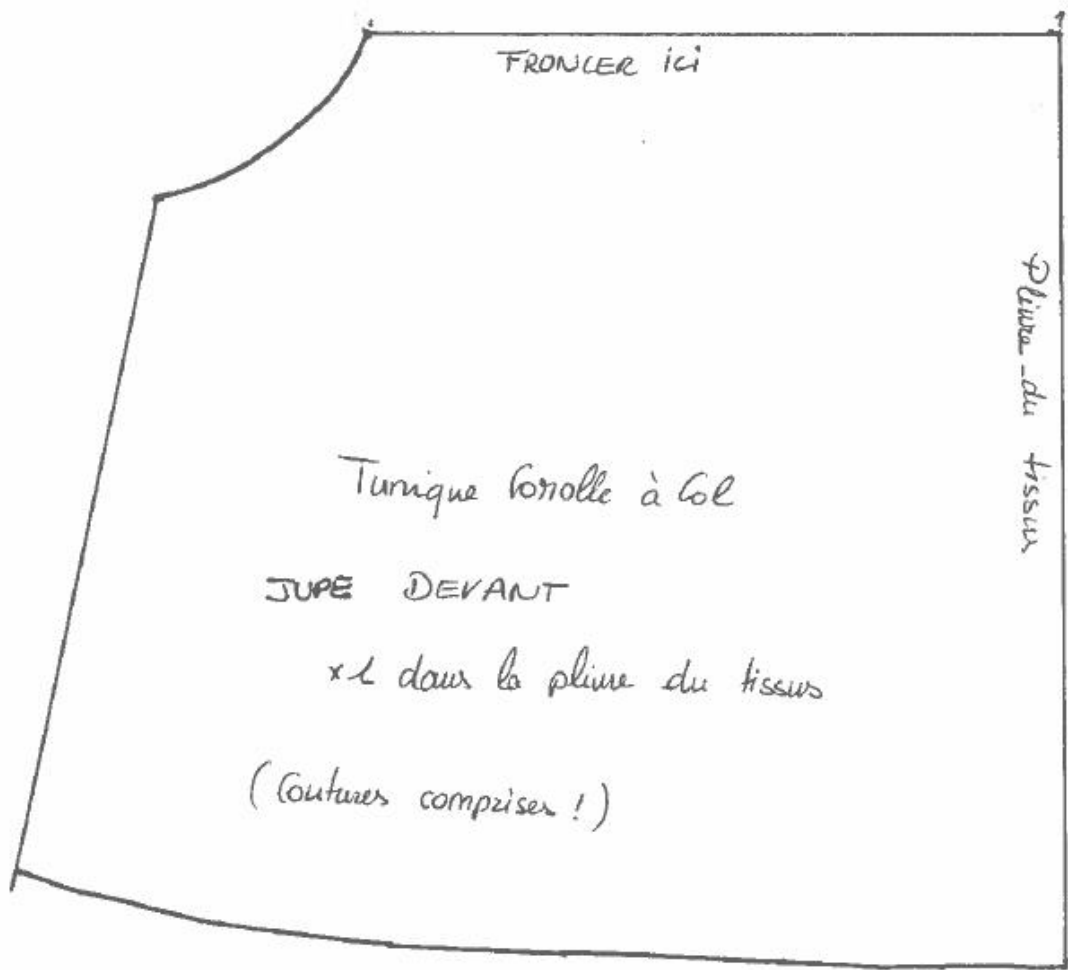 FRONCER ici
Pliure du tissus
Tunique Corolle à Col
JUPE DEVANT
x1 dans la pliure du tissus
(Coutures comprises !)